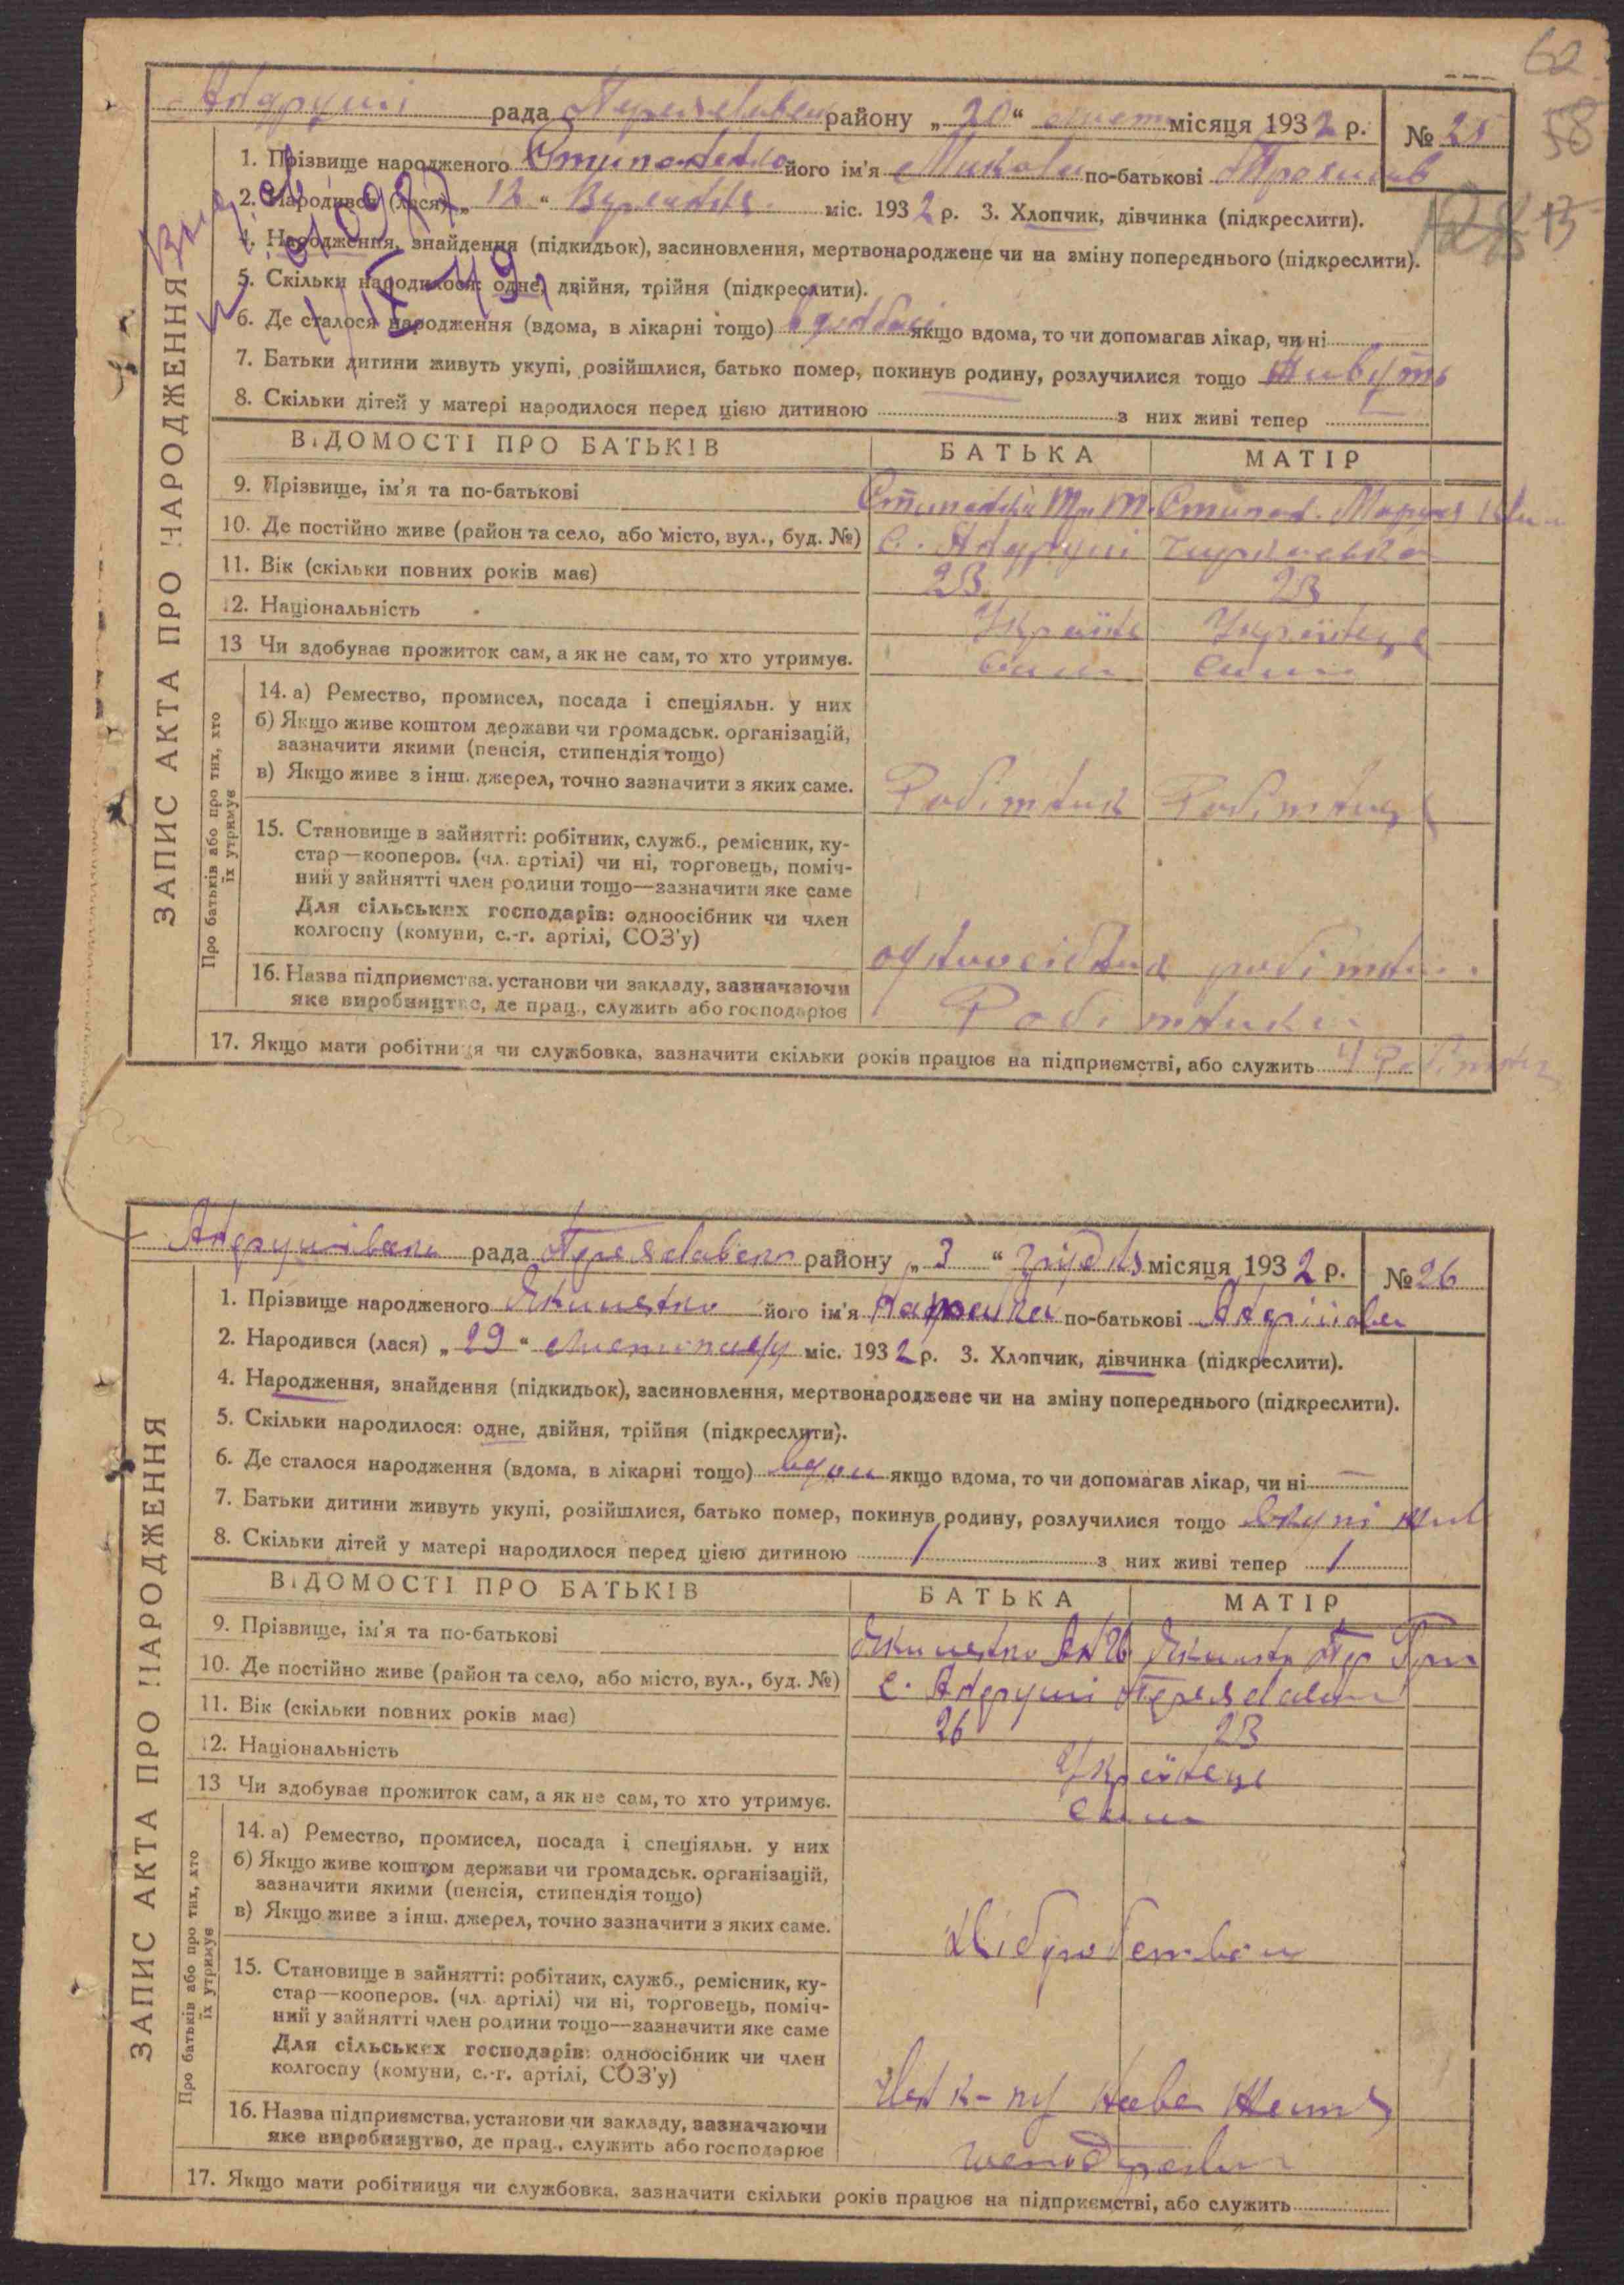 62
58
Андруші рада Переяславськ району „20“ листоп місяця 1932 р. № 25
1. Прізвище народженого його ім'я Микола по-батькові
2. Народився (лася) „12“ міс. 1932 р. 3. Хлопчик, дівчинка (підкреслити).
4. Народження, знайдення (підкидьок), засиновлення, мертвонароджене чи на зміну попереднього (підкреслити).
5. Скільки народилося: одне, двійня, трійня (підкреслити).
6. Де сталося народження (вдома, в лікарні тощо) якщо вдома, то чи допомагав лікар, чи ні
7. Батьки дитини живуть укупі, розійшлися, батько помер, покинув родину, розлучилися тощо живуть
8. Скільки дітей у матері народилося перед цією дитиною з них живі тепер
ВІДОМОСТІ ПРО БАТЬКІВ БАТЬКА МАТІР
9. Прізвище, ім'я та по-батькові
10. Де постійно живе (район та село, або місто, вул., буд. №) с. Андруші
11. Вік (скільки повних років має) 23 23
12. Національність Україн Українець
13 Чи здобуває прожиток сам, а як не сам, то хто утримує. сам сама
14. а) Ремество, промисел, посада і спеціяльн. у них
б) Якщо живе коштом держави чи громадськ. організацій,
зазначити якими (пенсія, стипендія тощо)
в) Якщо живе з інш. джерел, точно зазначити з яких саме. Робітник
15. Становище в зайнятті: робітник, служб., ремісник, ку-
стар—кооперов. (чл. артілі) чи ні, торговець, поміч-
ний у зайнятті член родини тощо—зазначити яке саме
Для сільських господарів: одноосібник чи член
колгоспу (комуни, с.-г. артілі, СОЗ'у) одноосібник
16. Назва підприємства, установи чи закладу, зазначаючи
яке виробництво, де прац., служить або господарює
17. Якщо мати робітниця чи службовка, зазначити скільки років працює на підприємстві, або служить
ЗАПИС АКТА ПРО НАРОДЖЕННЯ
Про батьків або про тих, хто
їх утримує
Андрушівська рада Переяславськ району „3“ грудня місяця 1932 р. № 26
1. Прізвище народженого Якименко його ім'я по-батькові Андріївна
2. Народився (лася) „29“ листопаду міс. 1932 р. 3. Хлопчик, дівчинка (підкреслити).
4. Народження, знайдення (підкидьок), засиновлення, мертвонароджене чи на зміну попереднього (підкреслити).
5. Скільки народилося: одне, двійня, трійня (підкреслити).
6. Де сталося народження (вдома, в лікарні тощо) вдома якщо вдома, то чи допомагав лікар, чи ні
7. Батьки дитини живуть укупі, розійшлися, батько помер, покинув родину, розлучилися тощо вкупі жив
8. Скільки дітей у матері народилося перед цією дитиною 1 з них живі тепер 1
ВІДОМОСТІ ПРО БАТЬКІВ БАТЬКА МАТІР
9. Прізвище, ім'я та по-батькові Якименко
10. Де постійно живе (район та село, або місто, вул., буд. №) с. Андруші Переяславськ
11. Вік (скільки повних років має) 26 23
12. Національність Українець
13 Чи здобуває прожиток сам, а як не сам, то хто утримує. сам
14. а) Ремество, промисел, посада і спеціяльн. у них
б) Якщо живе коштом держави чи громадськ. організацій,
зазначити якими (пенсія, стипендія тощо)
в) Якщо живе з інш. джерел, точно зазначити з яких саме. Хліборобством
15. Становище в зайнятті: робітник, служб., ремісник, ку-
стар—кооперов. (чл. артілі) чи ні, торговець, поміч-
ний у зайнятті член родини тощо—зазначити яке саме
Для сільських господарів: одноосібник чи член
колгоспу (комуни, с.-г. артілі, СОЗ'у) Член к-пу Нове Життя
16. Назва підприємства, установи чи закладу, зазначаючи
яке виробництво, де прац., служить або господарює
17. Якщо мати робітниця чи службовка, зазначити скільки років працює на підприємстві, або служить
ЗАПИС АКТА ПРО НАРОДЖЕННЯ
Про батьків або про тих, хто
їх утримує